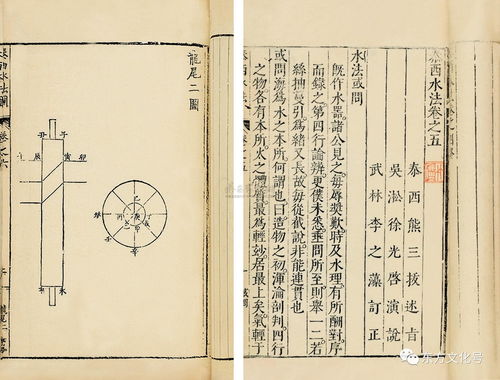 泰西水法卷之五
泰西熊三拔述旨
吳淞徐光啓演說
武林李之藻訂正
水法或問
既作水器諸公見之每辱奬歎時及水理有所酬對序
而錄之第四行論辨更僕未悉垂問所至則舉一二若
絲抽蔓引爲緒又長故每從截說非能連貫也
或問海爲水之本所何謂也曰造物之初渾淪剖判四行
之物各有本所火之體質最爲輕妙居最上矣氣輕于
泰西水法
卷之五
或問
龍尾二圖
泰西水法圖
卷之六
龍尾二
东方文化号